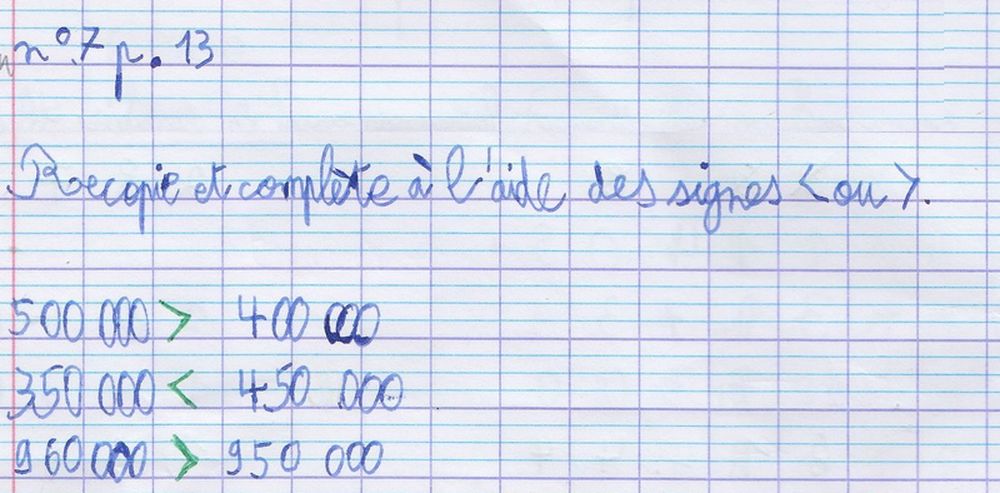 n°7 p. 13
Recopie et complète à l'aide des signes < ou >.
500 000 > 400 000
350 000 < 450 000
960 000 > 950 000